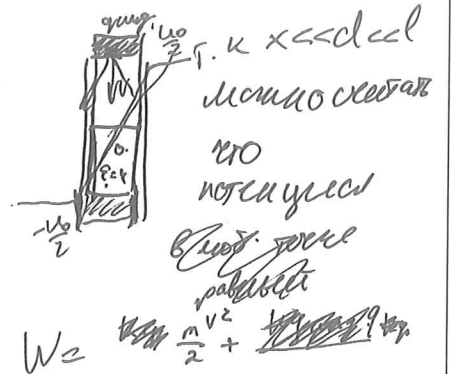 U₀/2
т. к x<<d<<l
можно считать
что
потенциал
в люб. точке
равный
-U₀/2
W = mv²/2 +